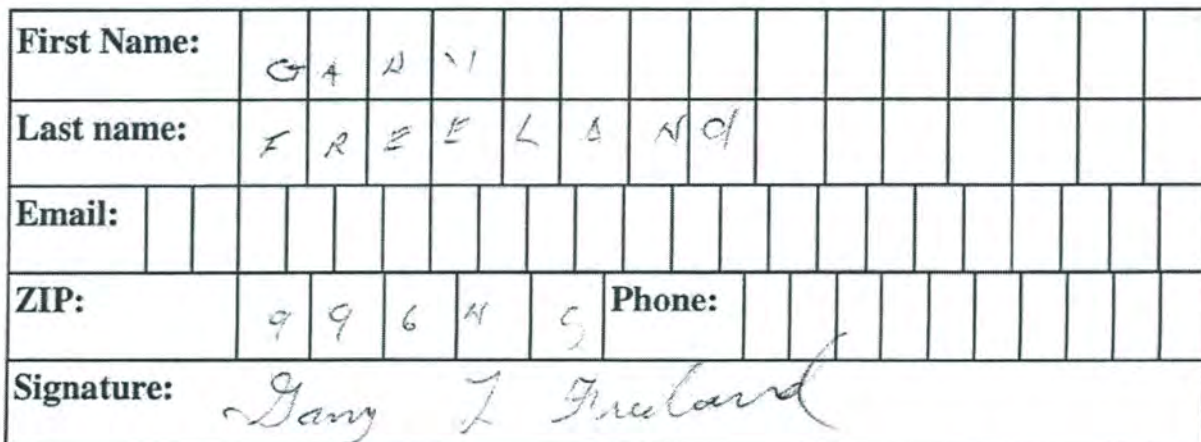 First Name: GARY
Last name: FREELAND
Email:
ZIP: 99645 Phone:
Signature: Gary L Freeland